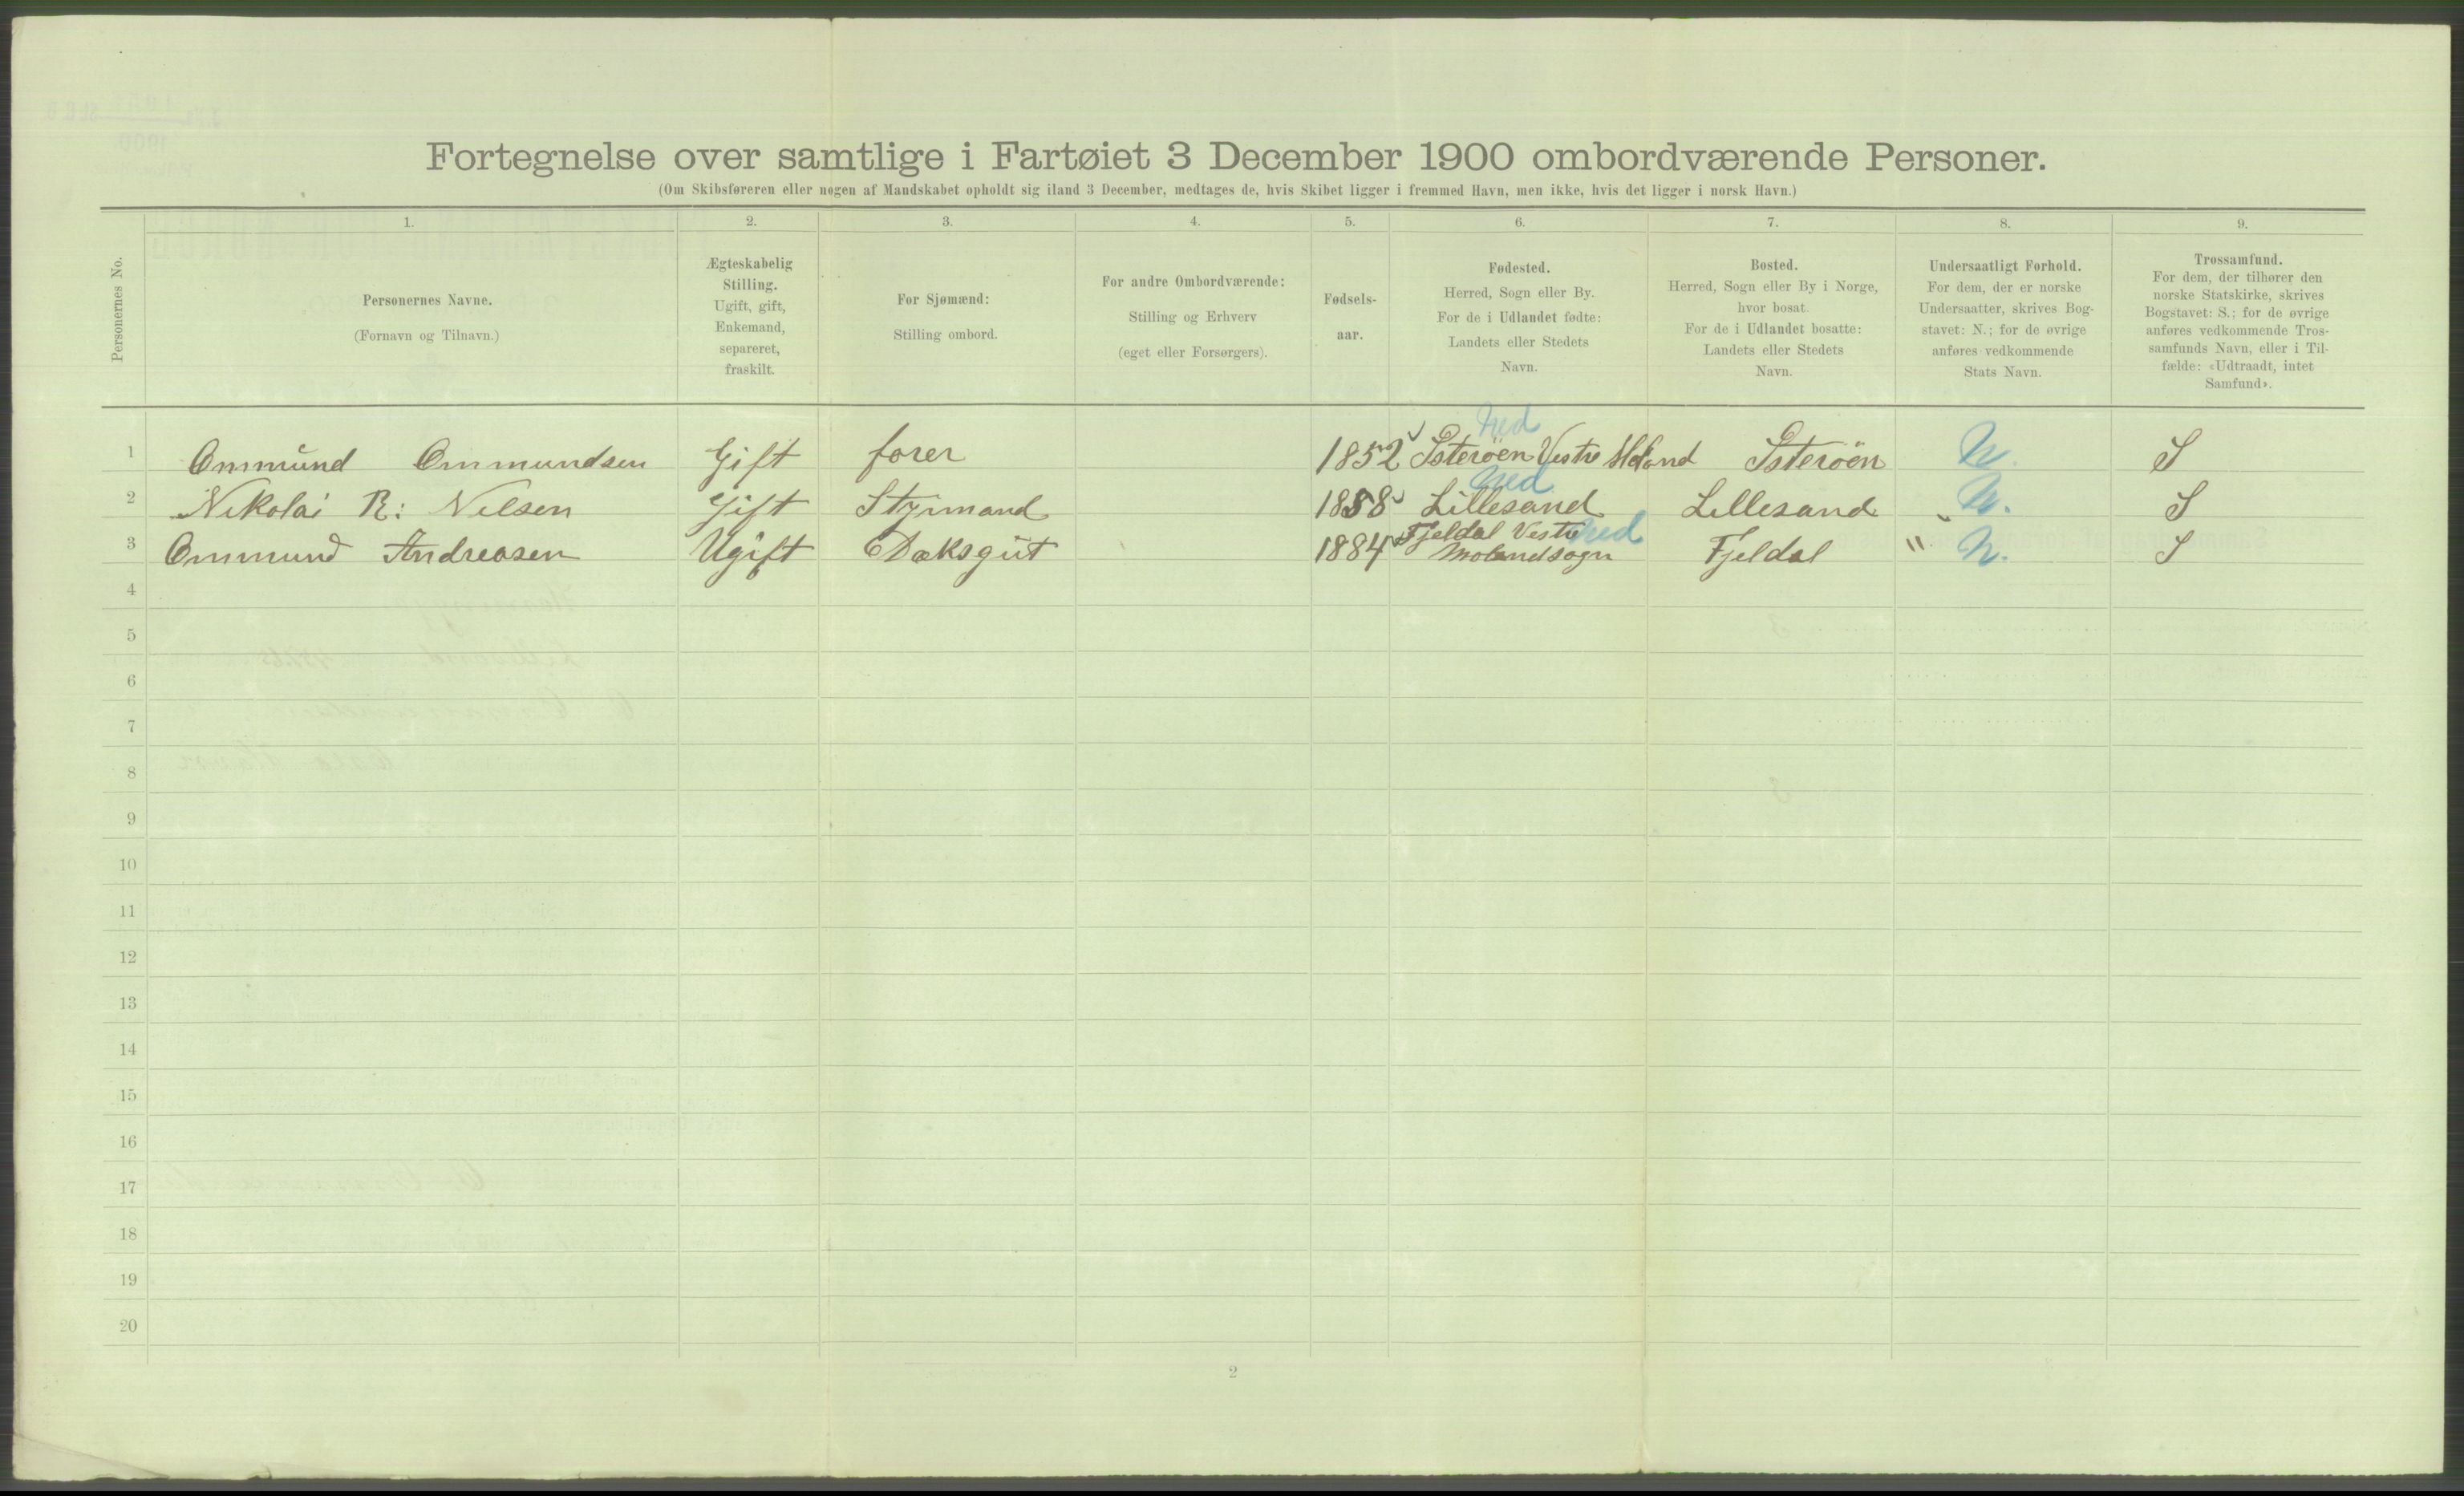 Fortegnelse over samtlige i Fartøiet 3 December 1900 ombordværende Personer.
(Om Skibsføreren eller nogen af Mandskabet opholdt sig iland 3 December, medtages de, hvis Skibet ligger i fremmed Havn, men ikke, hvis det ligger i norsk Havn.)
Personernes No.
1.
Personernes Navne.
(Fornavn og Tilnavn.)
2.
Ægteskabelig
Stilling.
Ugift, gift,
Enkemand,
separeret,
fraskilt.
3.
For Sjømænd:
Stilling ombord.
4.
For andre Ombordværende:
Stilling og Erhverv
(eget eller Forsørgers).
5.
Fødsels-
aar.
6.
Fødested.
Herred, Sogn eller By.
For de i Udlandet fødte:
Landets eller Stedets
Navn.
7.
Bosted.
Herred, Sogn eller By i Norge,
hvor bosat.
For de i Udlandet bosatte:
Landets eller Stedets
Navn.
8.
Undersaatligt Forhold.
For dem, der er norske
Undersaatter, skrives Bog-
stavet: N.; for de øvrige
anføres vedkommende
Stats Navn.
9.
Trossamfund.
For dem, der tilhører den
norske Statskirke, skrives
Bogstavet: S.; for de øvrige
anføres vedkommende Tros-
samfunds Navn, eller i Til-
fælde: «Udtraadt, intet
Samfund».
Ned
1 Ommund Ommundsen Gift fører 1852 Isterøen Vestre Moland Isterøen N. S
Ned
2 Nikolai R: Nilsen Gift Styrmand 1858 Lillesand Lillesand " N. S
Fjeldal Vestre Ned
3 Ommund Andreasen Ugift Dæksgut 1884 Molandsogn Fjeldal " N. S
4
5
6
7
8
9
10
11
12
13
14
15
16
17
18
19
20
2